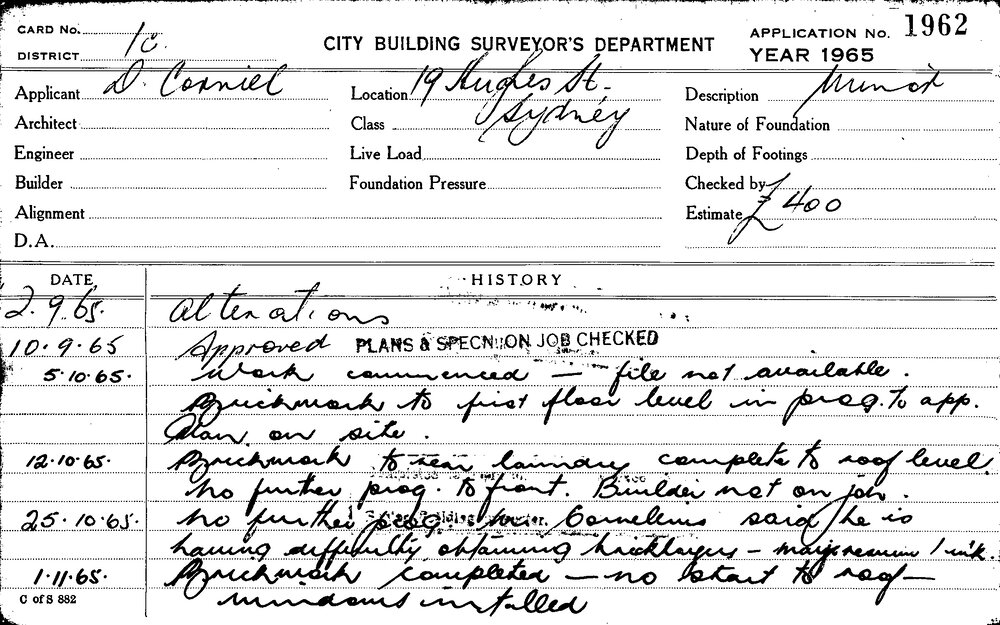 CARD No. 1c.
DISTRICT
CITY BUILDING SURVEYOR'S DEPARTMENT
APPLICATION No. 1962
YEAR 1965
Applicant D. Corniel
Location 19 Hughes St.
Sydney
Description Minor
Architect
Class
Nature of Foundation
Engineer
Live Load
Depth of Footings
Builder
Foundation Pressure
Checked by
Alignment
Estimate £ 400
D.A.
DATE
HISTORY
2.9.65. Alterations
10.9.65 Approved PLANS & SPECN ON JOB CHECKED
5.10.65. Work commenced — file not available.
Brickwork to first floor level in prog. to app.
Plan on site.
12.10.65. Brickwork to rear laundry complete to roof level.
No further prog. to front. Builder not on job.
25.10.65. No further prog. Cornelius said he is
having difficulty obtaining bricklayers – may resume 1 wk.
1.11.65. Brickwork completed — no start to roof —
windows installed
C of S 882